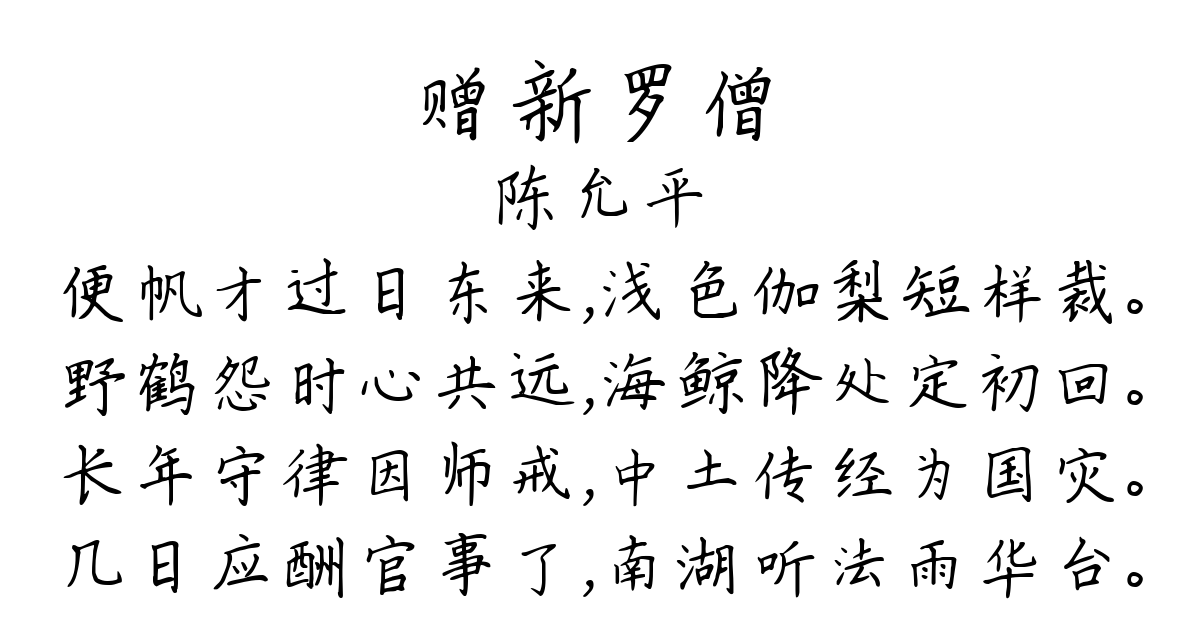 赠新罗僧
陈允平
便帆才过日东来,浅色伽梨短样裁。
野鹤怨时心共远,海鲸降处定初回。
长年守律因师戒,中土传经为国灾。
几日应酬官事了,南湖听法雨华台。